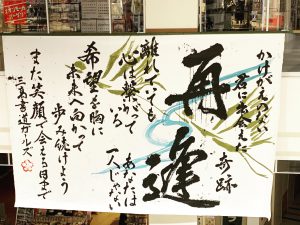 かけがえのない
君に出会えた
奇跡
再逢
離れていても
心は繋がって
いる
あなたは
一人じゃない
希望を胸に
未来へ向かって
歩み続けよう
また笑顔で会える日まで
三島書道ガールズ